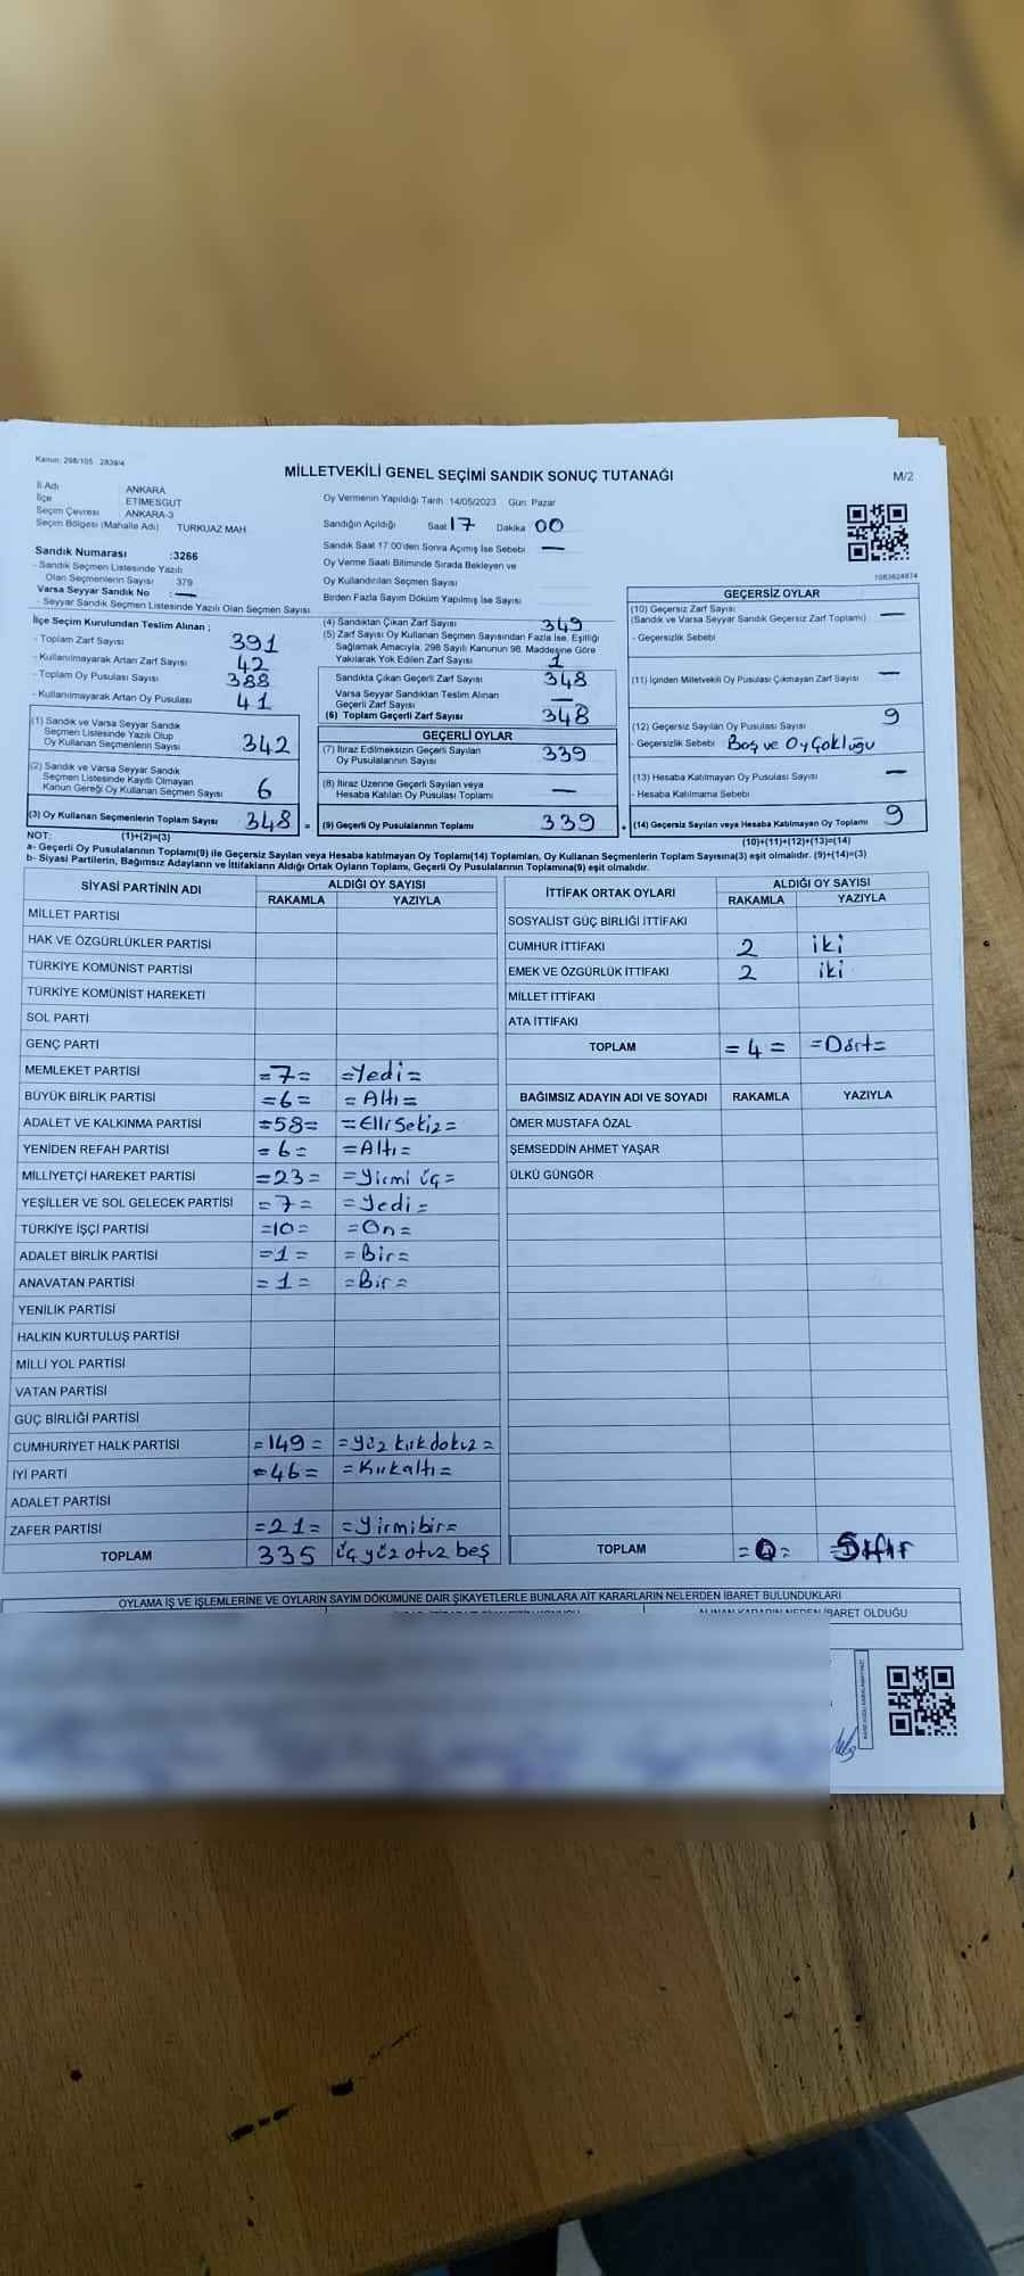 Kanun: 298/105 2839/4
MİLLETVEKİLİ GENEL SEÇİMİ SANDIK SONUÇ TUTANAĞI
M/2
İl Adı ANKARA
İlçe ETİMESGUT
Seçim Çevresi ANKARA-3
Seçim Bölgesi (Mahalle Adı) TURKUAZ MAH
Oy Vermenin Yapıldığı Tarih 14/05/2023 Gün: Pazar
Sandığın Açıldığı Saat 17 Dakika 00
Sandık Saat 17.00'den Sonra Açımış İse Sebebi —
Oy Verme Saati Bitiminde Sırada Bekleyen ve
Oy Kullandırılan Seçmen Sayısı
Birden Fazla Sayım Döküm Yapılmış İse Sayısı
1083624874
Sandık Numarası :3266
- Sandık Seçmen Listesinde Yazılı
Olan Seçmenlerin Sayısı 379
Varsa Seyyar Sandık No : —
- Seyyar Sandık Seçmen Listesinde Yazılı Olan Seçmen Sayısı
İlçe Seçim Kurulundan Teslim Alınan ;
- Toplam Zarf Sayısı 391
- Kullanılmayarak Artan Zarf Sayısı 42
- Toplam Oy Pusulası Sayısı 388
- Kullanılmayarak Artan Oy Pusulası 41
(1) Sandık ve Varsa Seyyar Sandık
Seçmen Listesinde Yazılı Olup
Oy Kullanan Seçmenlerin Sayısı 342
(2) Sandık ve Varsa Seyyar Sandık
Seçmen Listesinde Kayıtlı Olmayan
Kanun Gereği Oy Kullanan Seçmen Sayısı 6
(3) Oy Kullanan Seçmenlerin Toplam Sayısı 348
(1)+(2)=(3)
(4) Sandıktan Çıkan Zarf Sayısı 349
(5) Zarf Sayısı Oy Kullanan Seçmen Sayısından Fazla İse, Eşitliği
Sağlamak Amacıyla, 298 Sayılı Kanunun 98. Maddesine Göre
Yakılarak Yok Edilen Zarf Sayısı 1
Sandıkta Çıkan Geçerli Zarf Sayısı 348
Varsa Seyyar Sandıktan Teslim Alınan
Geçerli Zarf Sayısı —
(6) Toplam Geçerli Zarf Sayısı 348
GEÇERLİ OYLAR
(7) İtiraz Edilmeksizin Geçerli Sayılan
Oy Pusulalarının Sayısı 339
(8) İtiraz Üzerine Geçerli Sayılan veya
Hesaba Katılan Oy Pusulası Toplamı —
(9) Geçerli Oy Pusulalarının Toplamı 339
GEÇERSİZ OYLAR
(10) Geçersiz Zarf Sayısı
(Sandık ve Varsa Seyyar Sandık Geçersiz Zarf Toplamı) —
- Geçersizlik Sebebi
(11) İçinden Milletvekili Oy Pusulası Çıkmayan Zarf Sayısı —
(12) Geçersiz Sayılan Oy Pusulası Sayısı 9
- Geçersizlik Sebebi Boş ve Oy Çokluğu
(13) Hesaba Katılmayan Oy Pusulası Sayısı —
- Hesaba Katılmama Sebebi
(14) Geçersiz Sayılan veya Hesaba Katılmayan Oy Toplamı 9
(10)+(11)+(12)+(13)=(14)
NOT:
a- Geçerli Oy Pusulalarının Toplamı(9) ile Geçersiz Sayılan veya Hesaba katılmayan Oy Toplamı(14) Toplamları, Oy Kullanan Seçmenlerin Toplam Sayısına(3) eşit olmalıdır. (9)+(14)=(3)
b- Siyasi Partilerin, Bağımsız Adayların ve İttifakların Aldığı Ortak Oyların Toplamı, Geçerli Oy Pusulalarının Toplamına(9) eşit olmalıdır.
SİYASİ PARTİNİN ADI ALDIĞI OY SAYISI
RAKAMLA YAZIYLA
MİLLET PARTİSİ
HAK VE ÖZGÜRLÜKLER PARTİSİ
TÜRKİYE KOMÜNİST PARTİSİ
TÜRKİYE KOMÜNİST HAREKETİ
SOL PARTİ
GENÇ PARTİ
MEMLEKET PARTİSİ =7= =Yedi=
BÜYÜK BİRLİK PARTİSİ =6= =Altı=
ADALET VE KALKINMA PARTİSİ =58= =Elli Sekiz=
YENİDEN REFAH PARTİSİ =6= =Altı=
MİLLİYETÇİ HAREKET PARTİSİ =23= =Yirmi üç=
YEŞİLLER VE SOL GELECEK PARTİSİ =7= =Yedi=
TÜRKİYE İŞÇİ PARTİSİ =10= =On=
ADALET BİRLİK PARTİSİ =1= =Bir=
ANAVATAN PARTİSİ =1= =Bir=
YENİLİK PARTİSİ
HALKIN KURTULUŞ PARTİSİ
MİLLİ YOL PARTİSİ
VATAN PARTİSİ
GÜÇ BİRLİĞİ PARTİSİ
CUMHURİYET HALK PARTİSİ =149= =yüz kırk dokuz=
İYİ PARTİ =46= =Kırkaltı=
ADALET PARTİSİ
ZAFER PARTİSİ =21= =Yirmibir=
TOPLAM 335 üç yüz otuz beş
İTTİFAK ORTAK OYLARI ALDIĞI OY SAYISI
RAKAMLA YAZIYLA
SOSYALİST GÜÇ BİRLİĞİ İTTİFAKI
CUMHUR İTTİFAKI 2 iki
EMEK VE ÖZGÜRLÜK İTTİFAKI 2 iki
MİLLET İTTİFAKI
ATA İTTİFAKI
TOPLAM =4= =Dört=
BAĞIMSIZ ADAYIN ADI VE SOYADI RAKAMLA YAZIYLA
ÖMER MUSTAFA ÖZAL
ŞEMSEDDİN AHMET YAŞAR
ÜLKÜ GÜNGÖR
TOPLAM =0= =Sıfır
OYLAMA İŞ VE İŞLEMLERİNE VE OYLARIN SAYIM DÖKÜMÜNE DAİR ŞİKAYETLERLE BUNLARA AİT KARARLARIN NELERDEN İBARET BULUNDUKLARI
ALINAN KARARIN NEDEN İBARET OLDUĞU